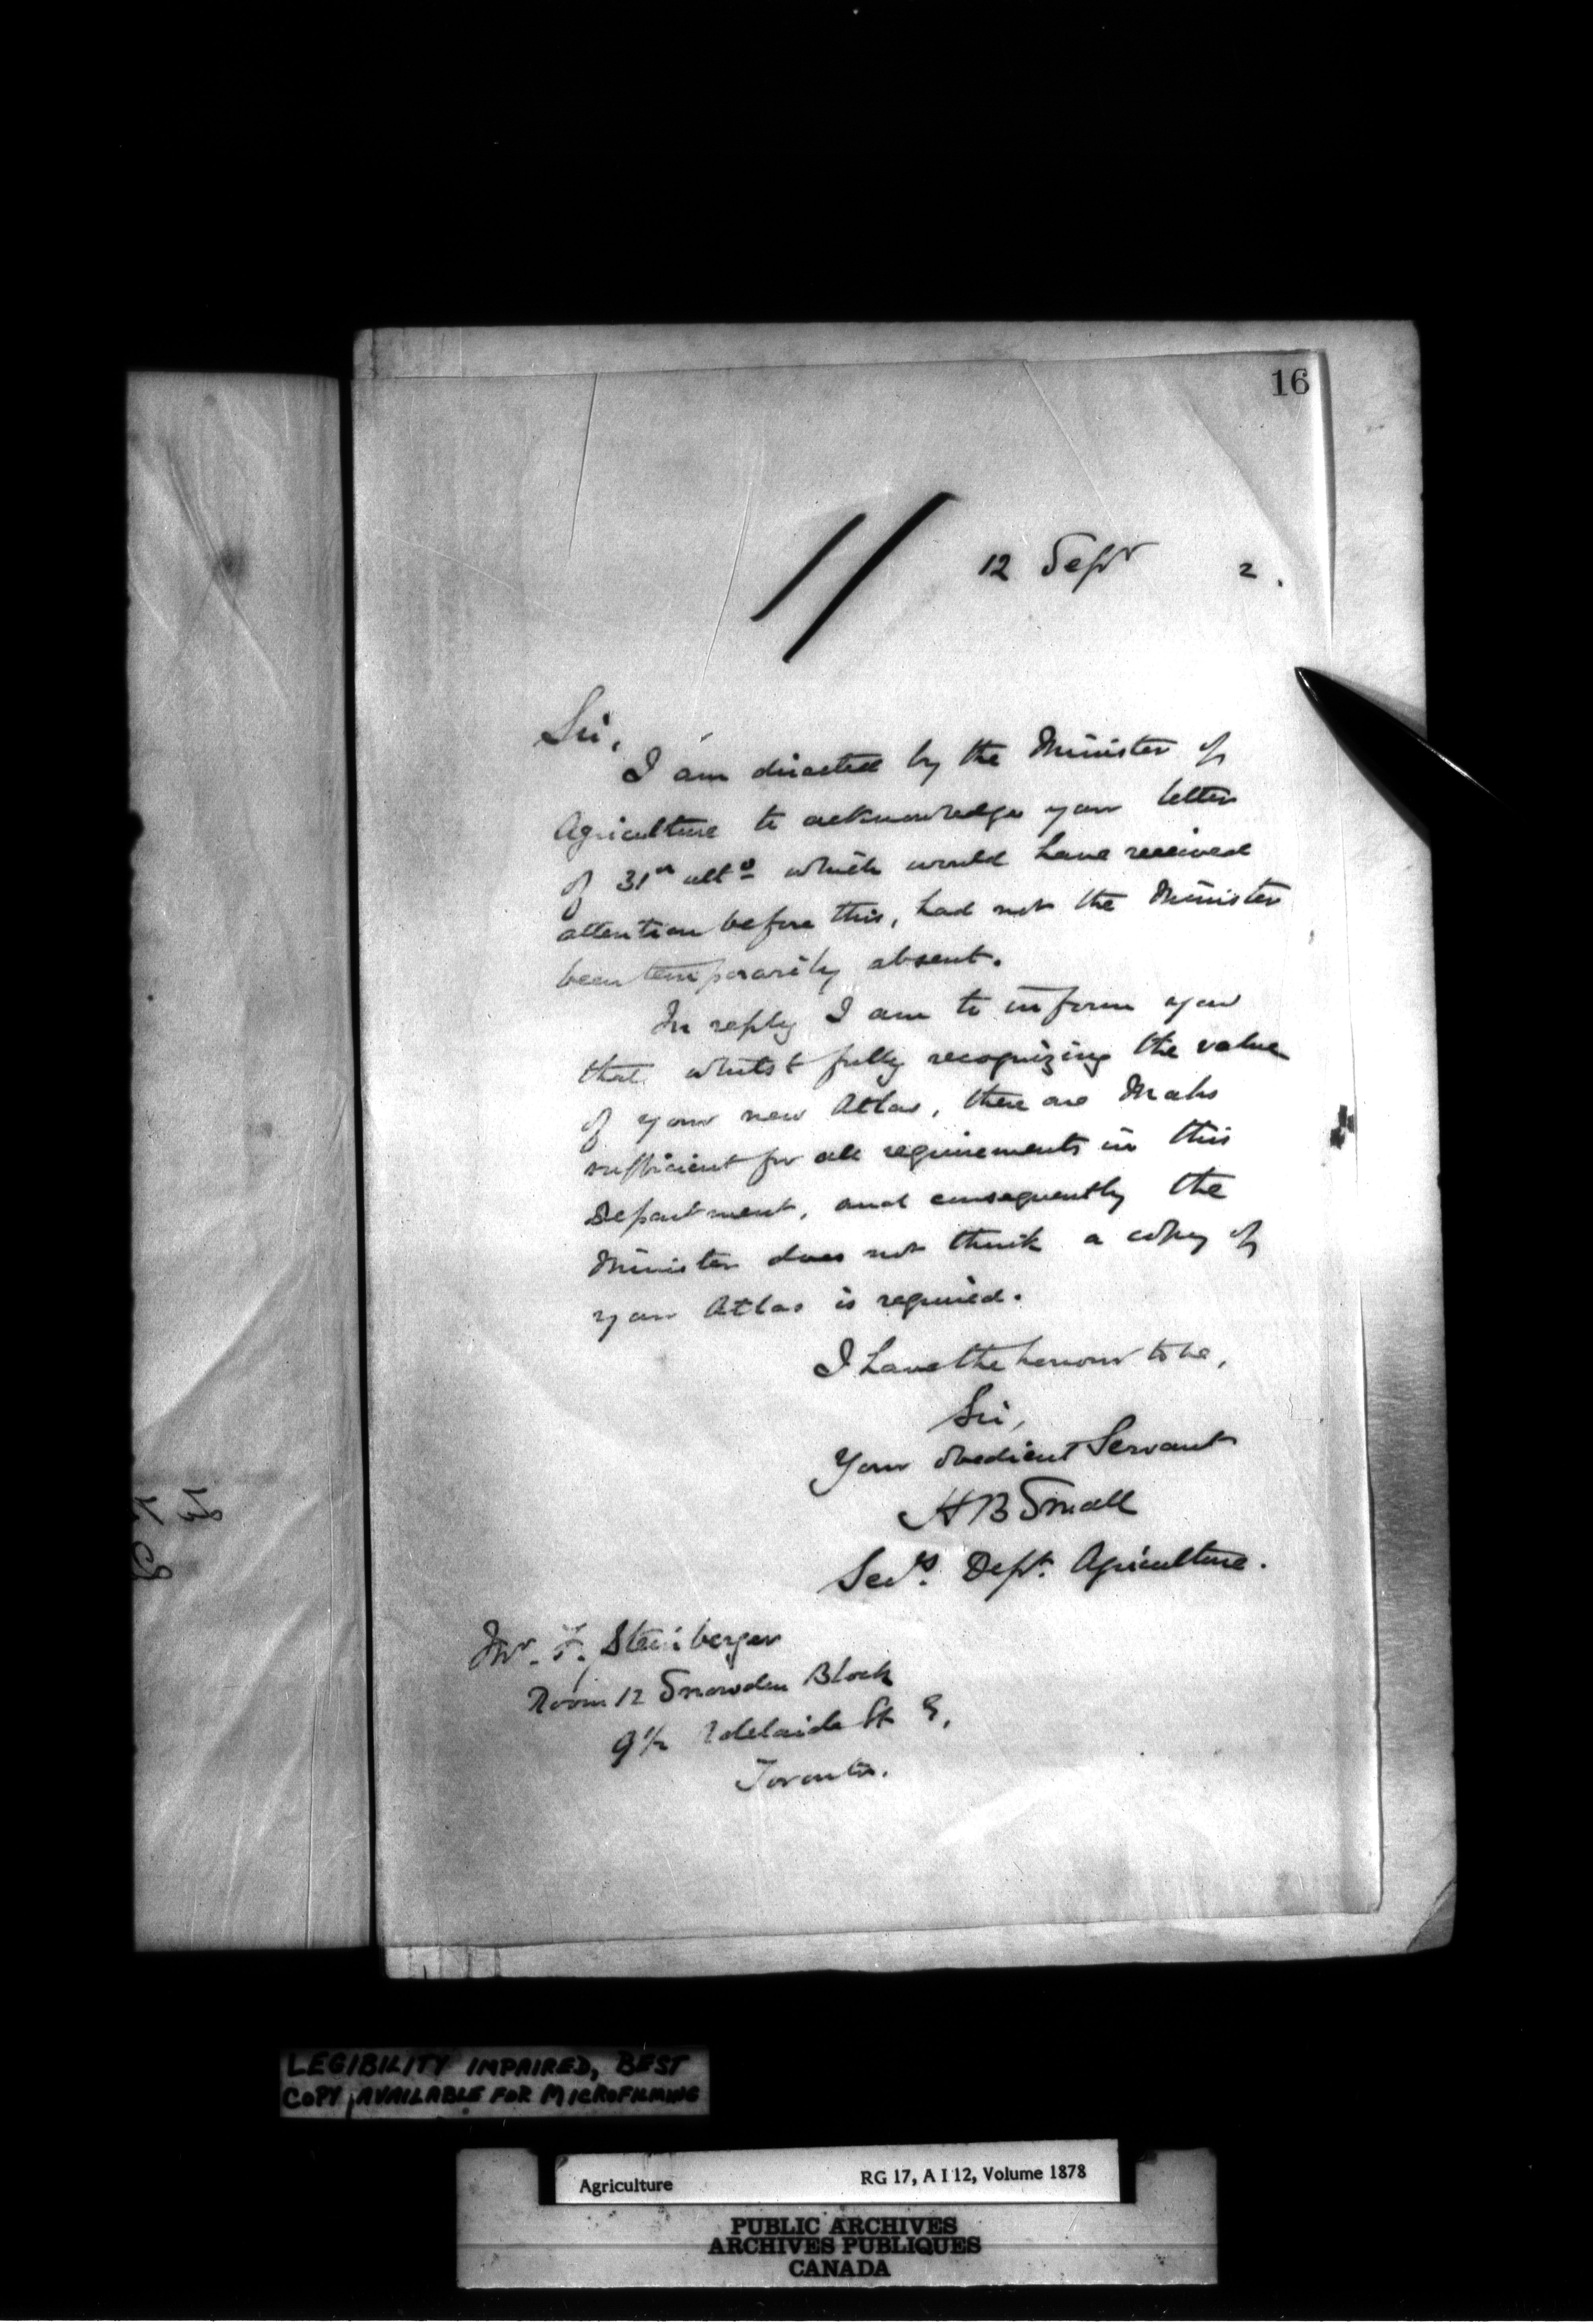 16
12 Sept 2.
Sir,
I am directed by the Minister of
Agriculture to acknowledge your letter
of 31st ulto which would have received
attention before this, had not the Minister
been temporarily absent.
In reply I am to inform you
that whilst fully recognizing the value
of your new Atlas, there are Maps
sufficient for all requirements in this
Department, and consequently the
Minister does not think a copy of
your Atlas is required.
I have the honour to be,
Sir,
Your obedient Servant
H B Small
Secy. Dept. Agriculture.
Mr. F. Steinberger
Room 12 Snowden Block
9½ Adelaide St E.
Toronto.
LEGIBILITY IMPAIRED, BEST
COPY AVAILABLE FOR MICROFILMING
Agriculture RG 17, A I 12, Volume 1878
PUBLIC ARCHIVES
ARCHIVES PUBLIQUES
CANADA